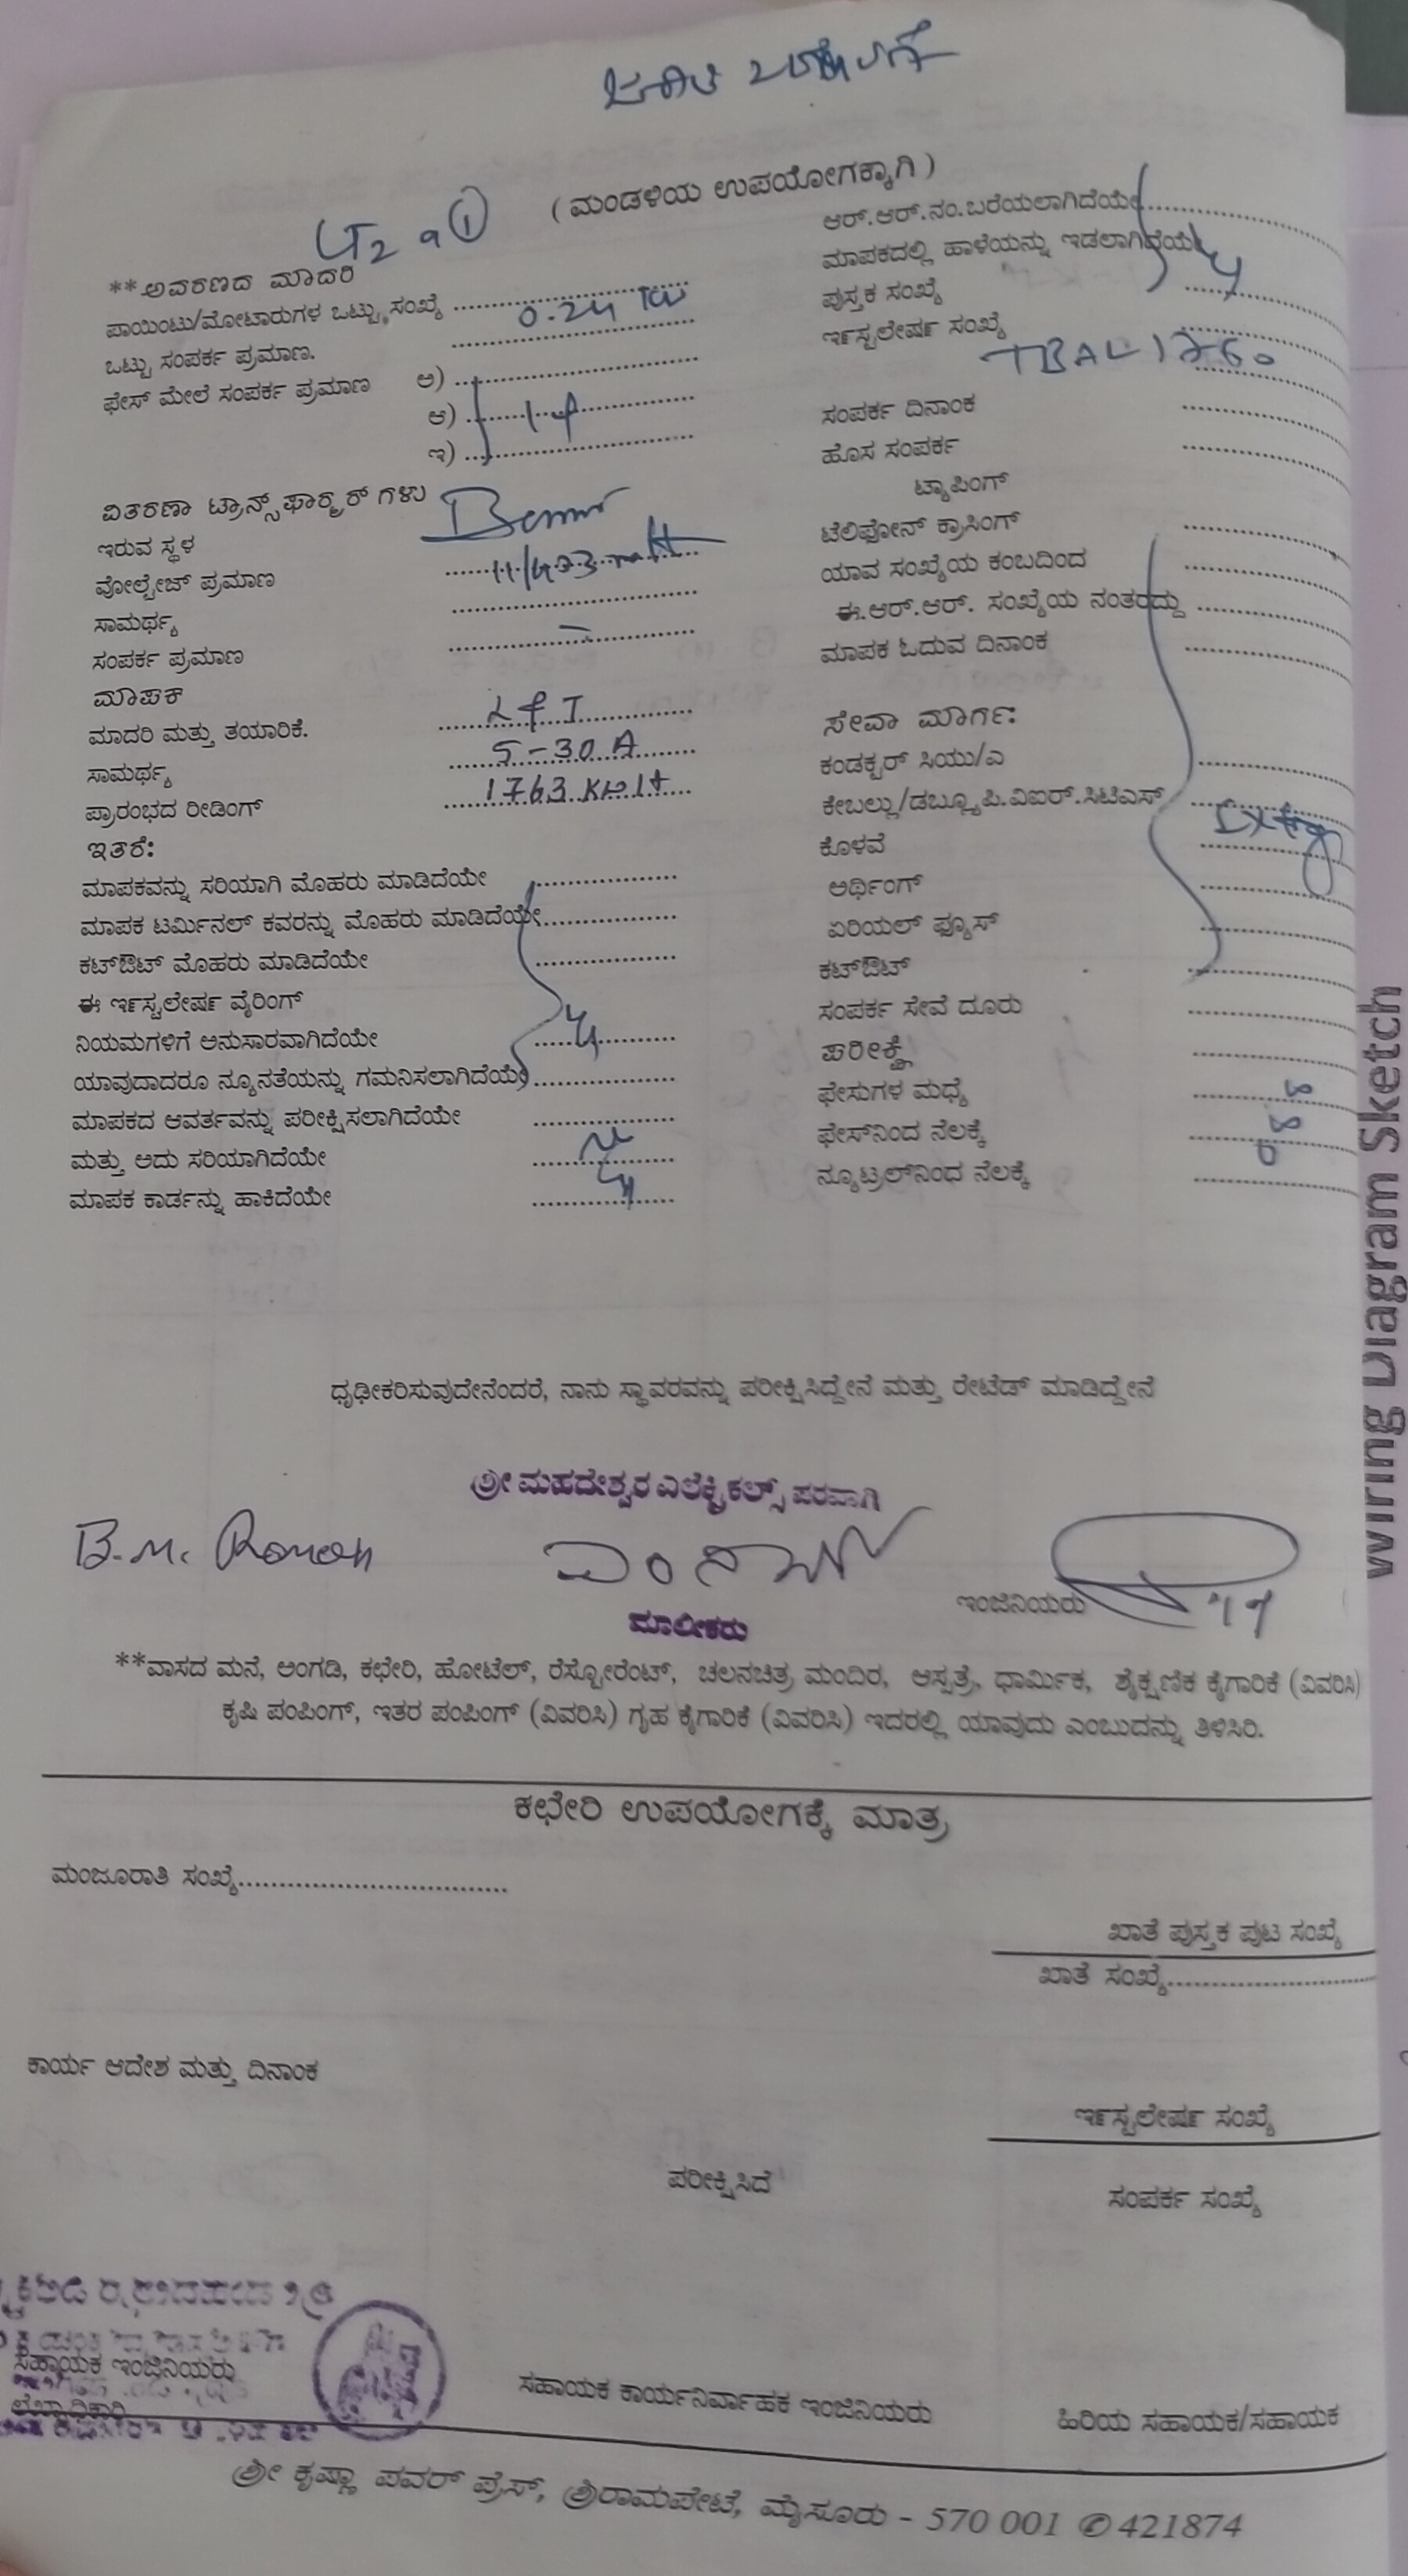 ( ಮಂಡಳಿಯ ಉಪಯೋಗಕ್ಕಾಗಿ )
**ಅವರಣದ ಮಾದರಿ
ಪಾಯಿಂಟು/ಮೋಟಾರುಗಳ ಒಟ್ಟು ಸಂಖ್ಯೆ
ಒಟ್ಟು ಸಂಪರ್ಕ ಪ್ರಮಾಣ. 0.24
ಫೇಸ್ ಮೇಲೆ ಸಂಪರ್ಕ ಪ್ರಮಾಣ ಅ)
ಆ)
ಇ)
ವಿತರಣಾ ಟ್ರಾನ್ಸ್‌ಫಾರ್ಮರ್ ಗಳು
ಇರುವ ಸ್ಥಳ
ವೋಲ್ಟೇಜ್ ಪ್ರಮಾಣ
ಸಾಮರ್ಥ್ಯ
ಸಂಪರ್ಕ ಪ್ರಮಾಣ
ಮಾಪಕ
ಮಾದರಿ ಮತ್ತು ತಯಾರಿಕೆ. L&T
ಸಾಮರ್ಥ್ಯ 5-30 A
ಪ್ರಾರಂಭದ ರೀಡಿಂಗ್ 1763
ಇತರೆ:
ಮಾಪಕವನ್ನು ಸರಿಯಾಗಿ ಮೊಹರು ಮಾಡಿದೆಯೇ
ಮಾಪಕ ಟರ್ಮಿನಲ್ ಕವರನ್ನು ಮೊಹರು ಮಾಡಿದೆಯೇ
ಕಟ್‌ಔಟ್ ಮೊಹರು ಮಾಡಿದೆಯೇ
ಈ ಇನ್‌ಸ್ಟಲೇಷನ್ ವೈರಿಂಗ್
ನಿಯಮಗಳಿಗೆ ಅನುಸಾರವಾಗಿದೆಯೇ
ಯಾವುದಾದರೂ ನ್ಯೂನತೆಯನ್ನು ಗಮನಿಸಲಾಗಿದೆಯೇ
ಮಾಪಕದ ಆವರ್ತವನ್ನು ಪರೀಕ್ಷಿಸಲಾಗಿದೆಯೇ
ಮತ್ತು ಅದು ಸರಿಯಾಗಿದೆಯೇ
ಮಾಪಕ ಕಾರ್ಡನ್ನು ಹಾಕಿದೆಯೇ
ಆರ್.ಆರ್.ನಂ.ಬರೆಯಲಾಗಿದೆಯೇ
ಮಾಪಕದಲ್ಲಿ ಹಾಳೆಯನ್ನು ಇಡಲಾಗಿದೆಯೇ
ಪುಸ್ತಕ ಸಂಖ್ಯೆ
ಇನ್‌ಸ್ಟಲೇಷನ್ ಸಂಖ್ಯೆ
ಸಂಪರ್ಕ ದಿನಾಂಕ
ಹೊಸ ಸಂಪರ್ಕ
ಟ್ಯಾಪಿಂಗ್
ಟೆಲಿಫೋನ್ ಕ್ರಾಸಿಂಗ್
ಯಾವ ಸಂಖ್ಯೆಯ ಕಂಬದಿಂದ
ಈ.ಆರ್.ಆರ್. ಸಂಖ್ಯೆಯ ನಂತರದ್ದು
ಮಾಪಕ ಓದುವ ದಿನಾಂಕ
ಸೇವಾ ಮಾರ್ಗ:
ಕಂಡಕ್ಟರ್ ಸಿಯು/ಎ
ಕೇಬಲ್ಲು/ಡಬ್ಲ್ಯೂಪಿ.ವಿಐಆರ್.ಸಿಟಿಎಸ್
ಕೊಳವೆ
ಅರ್ಥಿಂಗ್
ಏರಿಯಲ್ ಫ್ಯೂಸ್
ಕಟ್‌ಔಟ್
ಸಂಪರ್ಕ ಸೇವೆ ದೂರು
ಪರೀಕ್ಷೆ
ಫೇಸುಗಳ ಮಧ್ಯೆ
ಫೇಸ್‌ನಿಂದ ನೆಲಕ್ಕೆ
ನ್ಯೂಟ್ರಲ್‌ನಿಂದ ನೆಲಕ್ಕೆ
Wiring Diagram Sketch
ಧೃಢೀಕರಿಸುವುದೇನೆಂದರೆ, ನಾನು ಸ್ಥಾವರವನ್ನು ಪರೀಕ್ಷಿಸಿದ್ದೇನೆ ಮತ್ತು ರೇಟೆಡ್ ಮಾಡಿದ್ದೇನೆ
ಶ್ರೀ ಮಹದೇಶ್ವರ ಎಲೆಕ್ಟ್ರಿಕಲ್ಸ್ ಪರವಾಗಿ
ಇಂಜಿನಿಯರು
ಮಾಲೀಕರು
**ವಾಸದ ಮನೆ, ಅಂಗಡಿ, ಕಛೇರಿ, ಹೋಟೆಲ್, ರೆಸ್ಟೋರೆಂಟ್, ಚಲನಚಿತ್ರ ಮಂದಿರ, ಆಸ್ಪತ್ರೆ, ಧಾರ್ಮಿಕ, ಶೈಕ್ಷಣಿಕ ಕೈಗಾರಿಕೆ (ವಿವರಿಸಿ)
ಕೃಷಿ ಪಂಪಿಂಗ್, ಇತರ ಪಂಪಿಂಗ್ (ವಿವರಿಸಿ) ಗೃಹ ಕೈಗಾರಿಕೆ (ವಿವರಿಸಿ) ಇದರಲ್ಲಿ ಯಾವುದು ಎಂಬುದನ್ನು ತಿಳಿಸಿರಿ.
ಕಛೇರಿ ಉಪಯೋಗಕ್ಕೆ ಮಾತ್ರ
ಮಂಜೂರಾತಿ ಸಂಖ್ಯೆ
ಖಾತೆ ಪುಸ್ತಕ ಪುಟ ಸಂಖ್ಯೆ
ಖಾತೆ ಸಂಖ್ಯೆ
ಕಾರ್ಯ ಆದೇಶ ಮತ್ತು ದಿನಾಂಕ
ಇನ್‌ಸ್ಟಲೇಷನ್ ಸಂಖ್ಯೆ
ಪರೀಕ್ಷಿಸಿದೆ
ಸಂಪರ್ಕ ಸಂಖ್ಯೆ
ಸಹಾಯಕ ಇಂಜಿನಿಯರು
ಸಹಾಯಕ ಕಾರ್ಯನಿರ್ವಾಹಕ ಇಂಜಿನಿಯರು
ಹಿರಿಯ ಸಹಾಯಕ/ಸಹಾಯಕ
ಶ್ರೀ ಕೃಷ್ಣಾ ಪವರ್ ಪ್ರೆಸ್, ಶ್ರೀರಾಮಪೇಟೆ, ಮೈಸೂರು - 570 001 ✆ 421874